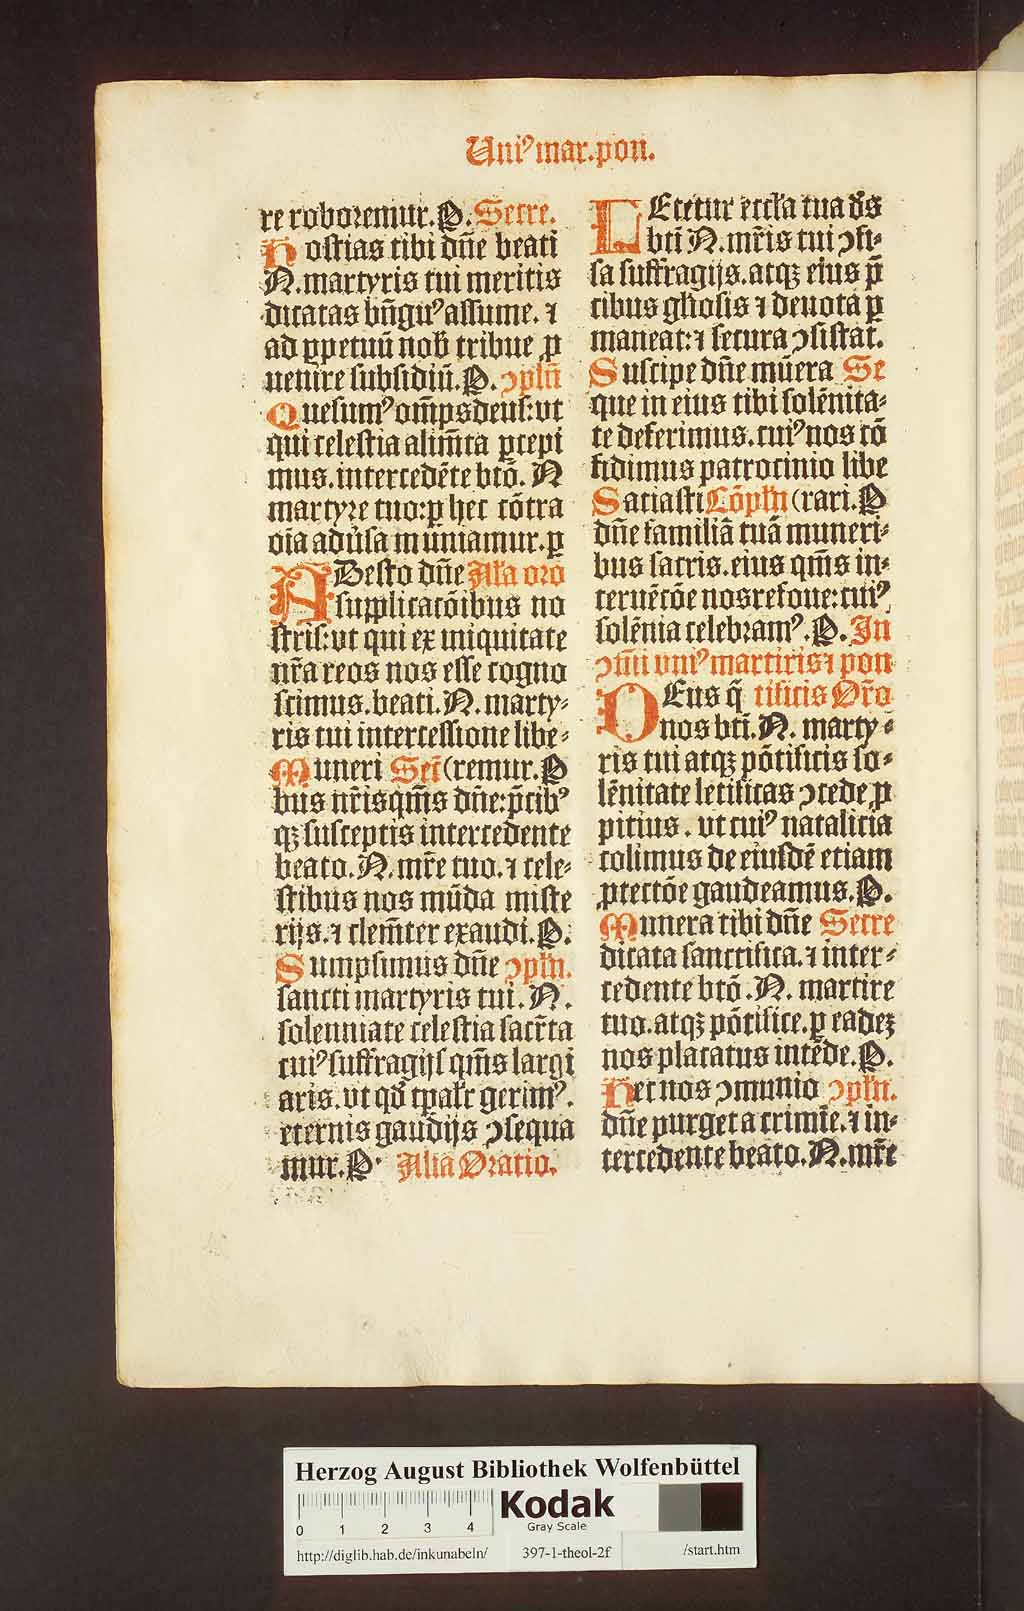 Uniꝰ mar. pon.
re roboremur. P. Secre.
Hostias tibi dñe beati
N. martyris tui meritis
dicatas bñgnꝰ assume. ⁊
ad ꝑpetuũ nob̃ tribue ꝓ
uenire subsidiũ. P. ꝯplñ
Quesumꝰ om̃ps deus: vt
qui celestia alim̃ta ꝑcepi
mus. intercedẽte btõ. N
martyre tuo: ꝑ hec cõtra
oĩa adũsa muniamur. ꝑ
ADesto dñe Al̃a oro
supplicatõibus no
stris: vt qui ex iniquitate
nr̃a reos nos esse cogno
scimus. beati. N. marty⸗
ris tui intercessione libe⸗
Muneri Secr̃ (remur. P
bus nr̃is qm̃s dñe: p̃cibꝰ
qꝫ susceptis intercedente
beato. N. mr̃e tuo. ⁊ cele⸗
stibus nos mũda miste
rijs. ⁊ clem̃ter exaudi. P.
Sumpsimus dñe ꝯpłn.
sancti martyris tui. N.
solenniate celestia sacr̃ta
cuiꝰ suffragijs qm̃s largi
aris. vt qđ tꝑałr gerimꝰ.
eternis gaudijs ꝯsequa
mur. P. Alia Oratio.
LEtetur eccł̃a tua đs
bti N. mr̃is tui ꝯfi⸗
sa suffragijs. atqꝫ eius p̃
cibus gł̃osis ⁊ deuota ꝑ
maneat: ⁊ secura ꝯsistat.
Suscipe dñe mũera Se
que in eius tibi solẽnita⸗
te deferimus. cuiꝰ nos cõ
fidimus patrocinio libe
Satiasti Cõpłn (rari. P
dñe familiã tuã muneri⸗
bus sacris. eius qm̃s in⸗
teruẽtõe nos refoue: cuiꝰ
solẽnia celebramꝰ. P. In
ꝯm̃i vniꝰ martiris ⁊ pon
DEus q̃ tificis Or̃o
nos bti. N. marty⸗
ris tui atqꝫ põtificis so⸗
lẽnitate letificas ꝯcede ꝓ
pitius. vt cuiꝰ natalicia
colimus de eiusdẽ etiam
ꝓtectõe gaudeamus. P.
Munera tibi dñe Secre
dicata sanctifica. ⁊ inter⸗
cedente btõ. N. martire
tuo. atqꝫ põtifice. ꝑ eadeꝫ
nos placatus intẽde. P.
Hec nos ꝯmunio ꝯpłn.
dñe purget a crimĩe. ⁊ in⸗
tercedente beato. N. mr̃e
Herzog August Bibliothek Wolfenbüttel
0 1 2 3 4
Kodak
Gray Scale
http://diglib.hab.de/inkunabeln/ 397-1-theol-2f /start.htm